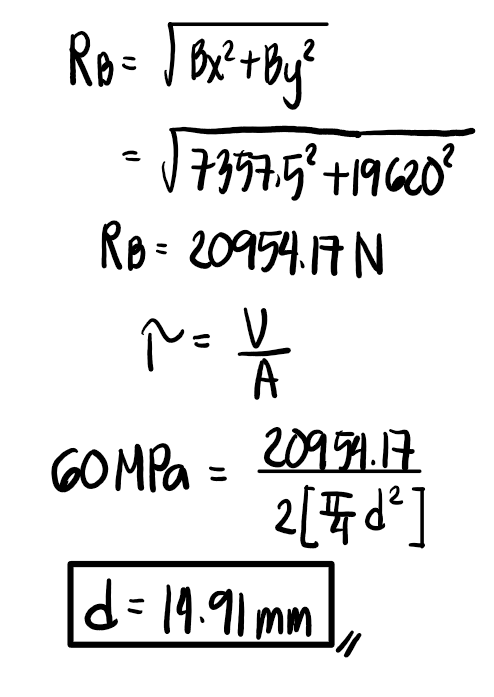 RB = √Bx²+By²
= √7357.5²+19620²
RB = 20954.17 N
τ = V/A
60 MPa = 20954.17/2[π/4 d²]
d = 14.91 mm //